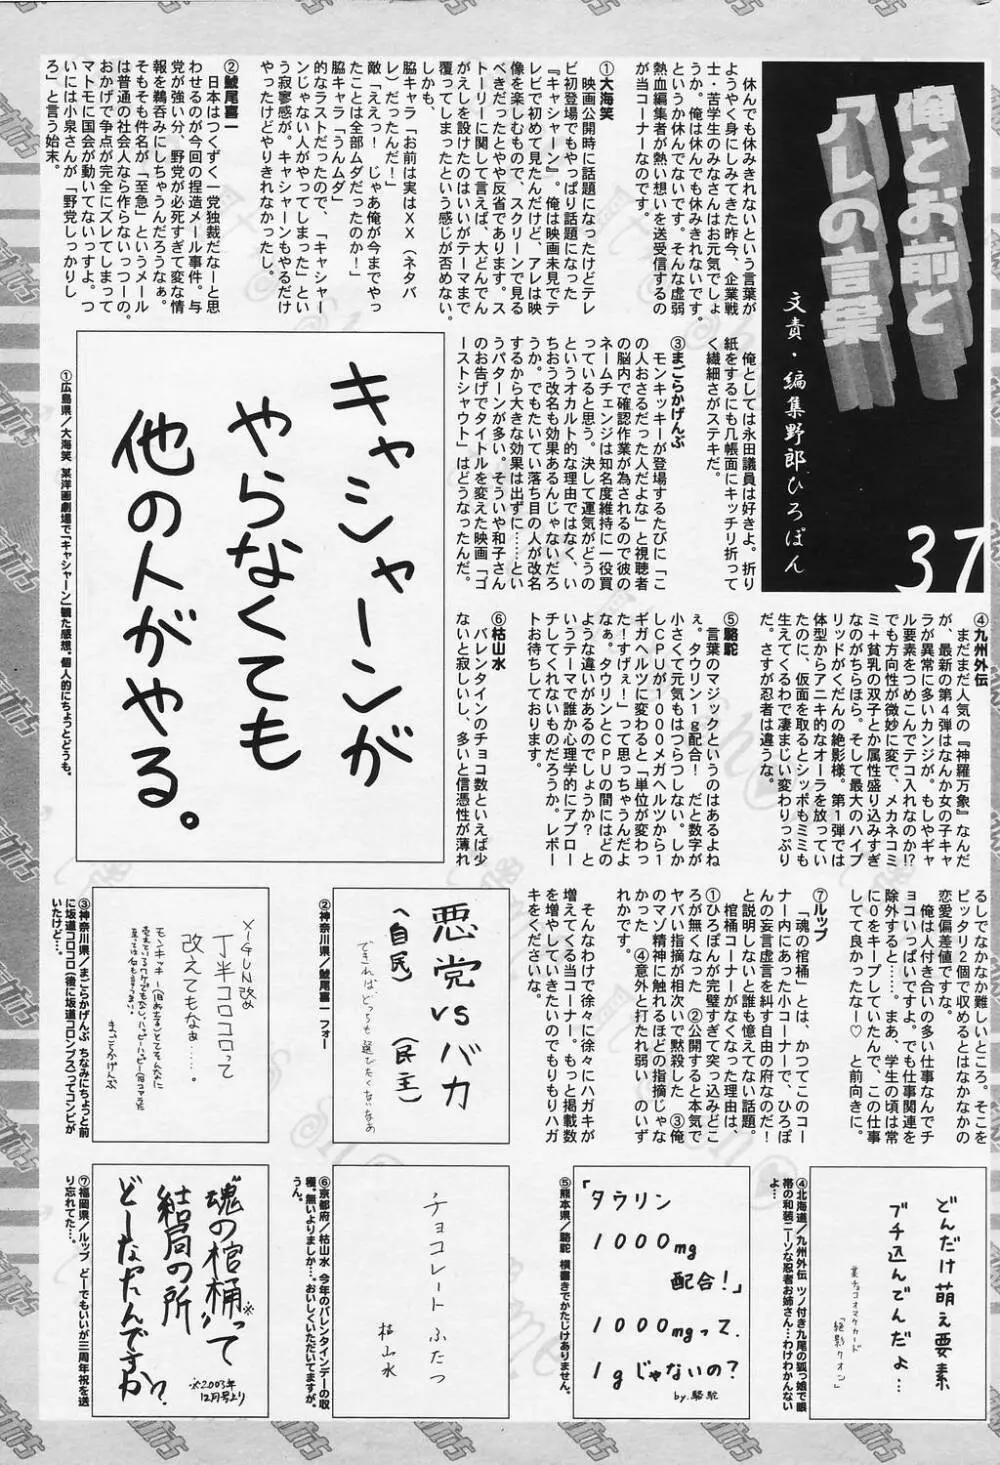 俺とお前と
アレの言葉
文責・編集野郎ひろぽん
37
休んでも休みきれないという言葉が
ようやく身にしみてきた昨今、企業戦
士・苦学生のみなさんはお元気でしょ
うか。俺は休んでも休みきれないです。
というか休んでないです。そんな虚弱
熱血編集者が熱い想いを送受信するの
が当コーナーなのです。
①大海笑
映画公開時に話題になったけどテレ
ビ初登場でもやっぱり話題になった
『キャシャーン』。俺は映画未見でテ
レビで初めて見たんだけど、アレは映
像を楽しむもので、スクリーンで見る
べきだったとやや反省であります。ス
トーリーに関して言えば、大どんでん
がえしを設けたのはいいがテーマまで
覆ってしまったという感じが否めない。
しかも、
脇キャラ「お前は実はXX(ネタバ
レ)だったんだ!」
敵「ええっ! じゃあ俺が今までやっ
たことは全部ムダだったのか!」
脇キャラ「うんムダ」
的なラストだったので、「キャシャー
ンじゃない人がやってしまった」とい
う寂寥感が。キャシャーンもやるだけ
やったけどやりきれなかったし。
②鯱尾喜一
日本はつくづく一党独裁だなーと思
わせるのが今回の捏造メール事件。与
党が強い分、野党が必死すぎて変な情
報を鵜呑みにしちゃうんだろうなぁ。
そもそも件名が「至急」というメール
は普通の社会人なら作らないっつーの。
おかげで争点が完全にズレてしまって
マトモに国会が動いてないっすよ。つ
いには小泉さんが「野党しっかりし
ろ」と言う始末。
俺としては永田議員は好きよ。折り
紙をするにも几帳面にキッチリ折って
く繊細さがステキだ。
③まごらかげんぶ
モンキッキーが登場するたびに「こ
の人おさるだった人だよな」と視聴者
の脳内で確認作業が為されるので彼の
ネームチェンジは知名度維持に一役買
っていると思う。決して運気がどうの
というオカルト的な理由ではなく、い
ちおう改名も効果あるんじゃないだろ
うか。でもたいてい落ち目の人が改名
するから大きな効果は出ずに……とい
うパターンが多い。そういや和子さん
のお告げでタイトルを変えた映画「ゴ
ーストシャウト」はどうなったんだ。
キャシャーンが
やらなくても
他の人がやる。
①広島県/大海笑 某洋画劇場で「キャシャーン」観た感想。個人的にちょっとどうも。
④九州外伝
まだまだ人気の『神羅万象』なんだ
が、最新の第4弾はなんか女の子キャ
ラが異常に多いカンジが。もしやギャ
ル要素をつめこんでテコ入れなのか!?
でも方向性が微妙に変で、メカネコミ
ミ+貧乳の双子とか属性盛り込みすぎ
なのがちらほら。そして最大のハイブ
リッドがくだんの絶影様。第1弾では
体型からアニキ的なオーラを放ってい
たのに、仮面を取るとシッポもミミも
生えてくるわで凄まじい変わりっぷり
だ。さすが忍者は違うな。
⑤駱駝
言葉のマジックというのはあるよね
ぇ。タウリン1g配合! だと数字が
小さくて元気もはつらつしない。しか
しCPUが1000メガヘルツから1
ギガヘルツに変わると「単位が変わっ
た!すげぇ!」って思っちゃうんだよ
なぁ。タウリンとCPUの間にはどの
ような違いがあるのでしょうか? と
いうテーマで誰か心理学的にアプロー
チしてくれないものだろうか。レポー
トお待ちしております。
⑥枯山水
バレンタインのチョコ数といえば少
ないと寂しいし、多いと信憑性が薄れ
るしでなかなか難しいところ。そこを
ピッタリ2個で収めるとはなかなかの
恋愛偏差値ですな。
俺は人付き合いの多い仕事なんでチ
ョコいっぱいですよ。でも仕事関連を
除外すると……まあ、学生の頃は常
に0をキープしていたんで、この仕事
してて良かったなー♡ と前向きに。
⑦ルップ
「魂の棺桶」とは、かつてこのコー
ナー内にあった小コーナーで、ひろぽ
んの妄言虚言を糾す自由の府なのだ!
と説明しないと誰も憶えてない話題。
棺桶コーナーがなくなった理由は、
①ひろぽんが完璧すぎて突っ込みどこ
ろが無くなった ②公開すると本気で
ヤバい指摘が相次いで黙殺した ③俺
のマゾ精神に触れるほどの指摘じゃな
かった ④意外と打たれ弱い のいず
れかです。
そんなわけで徐々に徐々にハガキが
増えてくる当コーナー。もっと掲載数
を増やしていきたいのでもりもりハガ
キをくださいな。
悪党vsバカ
(自民)
(民主)
できればどっちも選びたくないなあ
②神奈川県/鯱尾喜一 フォー
X-GUN改め
丁半コロコロって
改えてもなぁ……。
まごらかげんぶ
③神奈川県/まごらかげんぶ ちなみにちょっと前
に坂道コロコロ(後に坂道コロンブス)ってコンビが
いたけど…。
どんだけ萌え要素
ブチ込んでんだよ…
「絶影クオン」
④北海道/九州外伝 ツノ付き九尾の狐っ娘で眼
帯の和装ニーソな忍者お姉さん…わけわかんない
よ…
「タウリン
1000mg
配合!」
1000mgって、
1gじゃないの?
by.駱駝
⑤熊本県/駱駝 横書きでかたじけありません。
チョコレートふたつ
枯山水
⑥京都府/枯山水 今年のバレンタインデーの収
穫。無いよりましか…。おいしくいただいてますが。
うん。
"魂の棺桶"※って
結局の所
どーなったんですか?
※2003年
12月号より
⑦福岡県/ルップ どーでもいいが三周年祝を送
り忘れてた…。